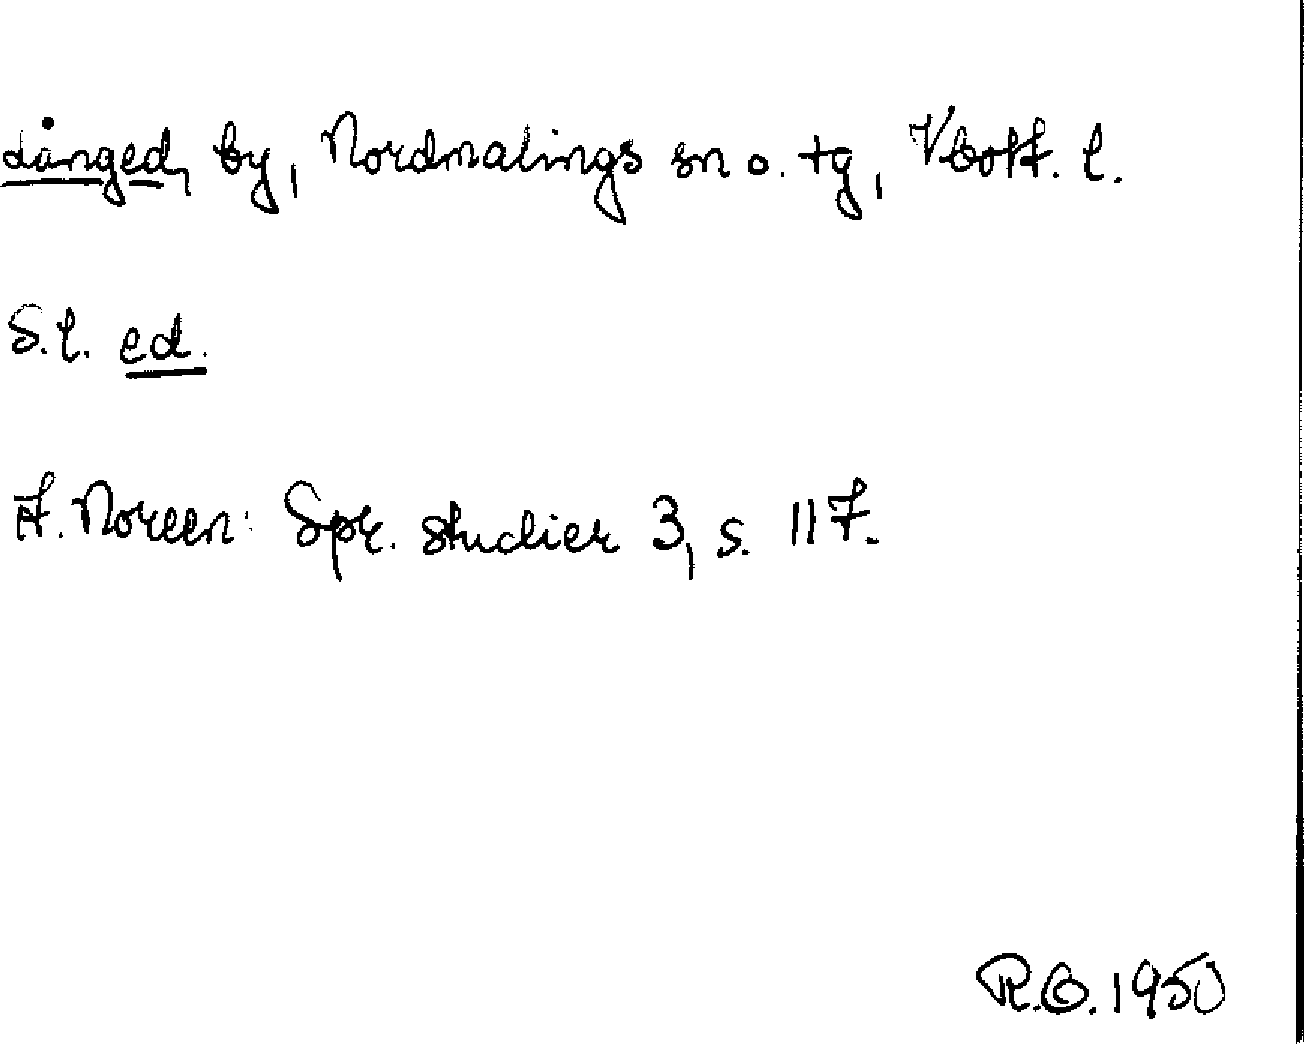 Långed, by, Nordmalings sn o. tg, Vbott. l.
S.l. ed.
A. Noreen: Spr. studier 3, s. 117.
R.O. 1950